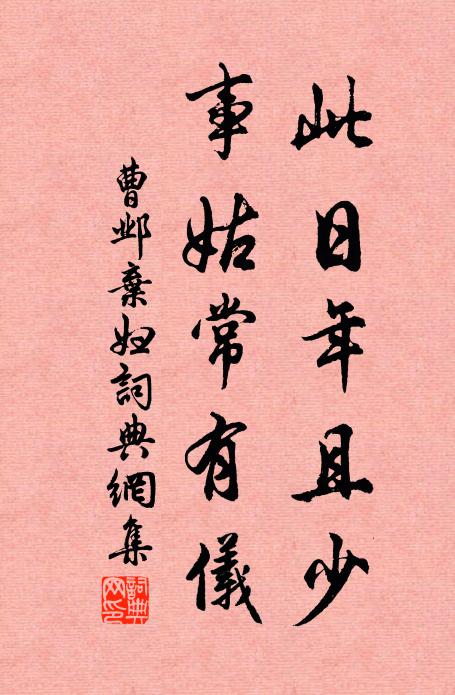 此日年且少
事姑常有儀
曹邺棄婦詞典網集
詞典網印